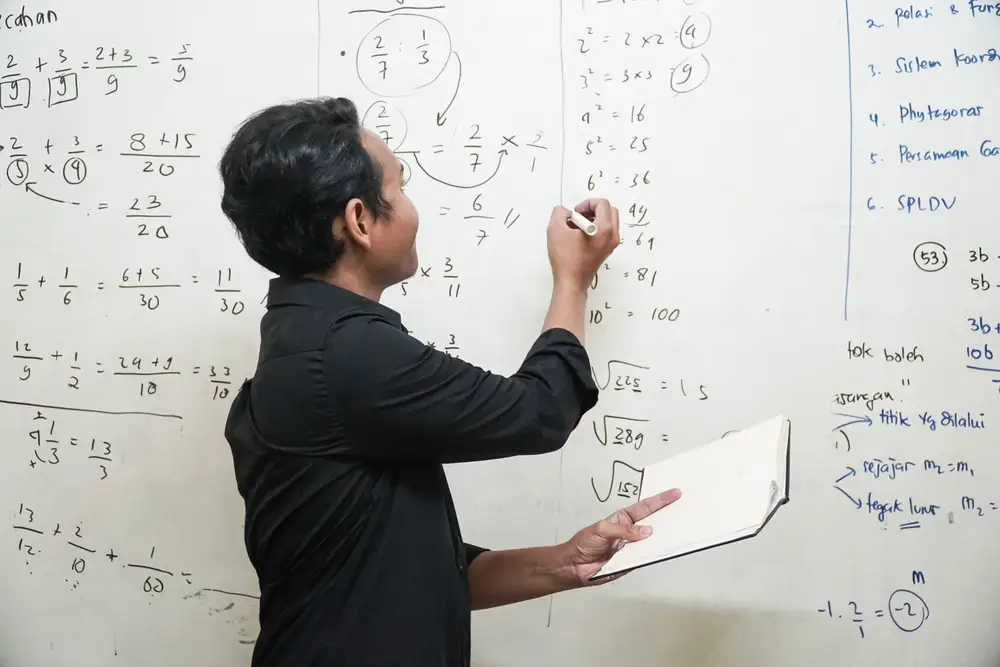 2/9 + 3/9 = 2+3/9 = 5/9
2/5 + 3/4 = 8+15/20
= 23/20
1/5 + 1/6 = 6+5/30 = 11/30
12/9 + 1/2 = 24+9/18 = 33/18
4 1/3 = 13/3
13/12 + 2/10 + 1/60 =
2/7 : 1/3
2/7
= 2/7 × 3/1
= 6/7 //
× 3/11
2² = 2 × 2 = 4
3² = 3 × 3 = 9
4² = 16
5² = 25
6² = 36
49
= 64
² = 81
10² = 100
√225 = 15
√289 =
√152
2. Relasi &
3. Sistem
4. Phytagoras
5. Persamaan
6. SPLDV
53) 3b
5b
3b+
10b
tok boleh
titik yg dilalui
sejajar m₂=m₁
tegak lurus m₂=
m
-1 . 2/1 = -2